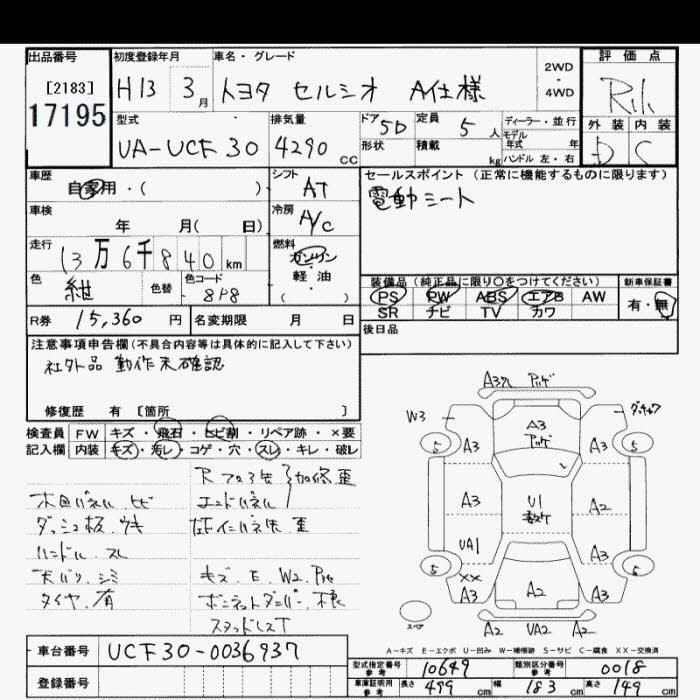 出品番号
[2183]
17195
初度登録年月
H13 3月
車名・グレード
トヨタ セルシオ A仕様
2WD
・
4WD
評価点
外装 内装
D C
型式
UA-UCF30
排気量
4290 cc
ドア 5D
形状
定員 5人
積載 kg
ディーラー・並行
モデル
年式 年
ハンドル 左・右
車歴
自家用・( )
シフト
AT
セールスポイント(正常に機能するものに限ります)
電動シート
車検
年 月( 日)
冷房
A/C
走行
13万6千840km
燃料
ガソリン
軽油
( )
色
紺
色替
色コード
8P8
装備品(純正品に限り○をつけてください)
PS PW ABS エアB AW
SR ナビ TV カワ
新車保証書
有・無
R券 15,360円
名変期限 月 日
後日品
注意事項申告欄(不具合内容等は具体的に記入して下さい)
社外品 動作未確認
修復歴 有 [箇所 ]
検査員
記入欄
FW キズ・飛石・ヒビ割・リペア跡・×要
内装 キズ・汚レ・コゲ・穴・スレ・キレ・破レ
木目パネル.ヒビ
ダッシュ板.ウキ
ハンドル.スレ
天バリ.シミ
タイヤ.有
エンドパネル
キズ.E.W2
A3
W3
A3
5
5
A3
A3
A3
U1
A2
UA1
A3
××
A3
5
5
A2
A3
スペア
A2 UA2 A2
A-キズ E-エクボ U-凹み W-補修跡 S-サビ C-腐食 XX-交換済
車台番号 UCF30-0036937
登録番号
型式指定番号
参考
10649
類別区分番号
参考
0018
車庫証明用
参考
長さ 499cm 幅 183cm 高さ 149cm